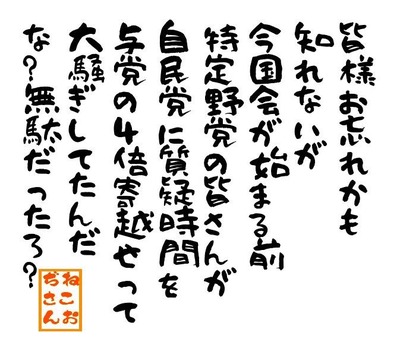 皆様お忘れかも
知れないが
今国会が始まる前
特定野党の皆さんが
自民党に質疑時間を
与党の4倍寄越せって
大騒ぎしてたんだ
な?無駄だったろ?
ねこお
ぢさん